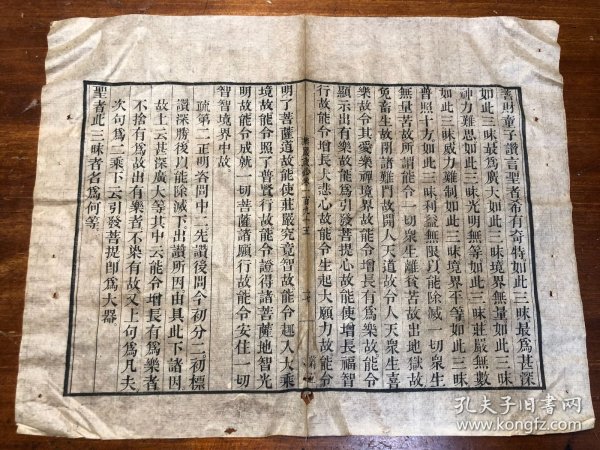 善財童子讚言聖者希有奇特如此三昧最為甚深
如此三昧最為廣大如此三昧境界無量如此三昧
神力難思如此三昧光明無等如此三昧莊嚴無數
如此三昧威力難制如此三昧境界平等如此三昧
普照十方如此三昧利益無限以能除滅一切眾生
無量苦故所謂能令一切眾生離貧苦故出地獄故
免畜生故閉諸難門故開人天道故令人天眾生喜
樂故令其愛樂禪境界故能令增長有為樂故能令
顯示出有樂故能為引發菩提心故能使增長福智
行故能令增長大悲心故能令生起大願力故能令
明了菩薩道故能使莊嚴究竟智故能令趣入大乘
境故能令照了普賢行故能令證得諸菩薩地智光
明故能令成就一切菩薩諸願行故能令安住一切
智智境界中故
疏第二正明答問中二先讚後問今初分二初標
讚深勝後以能除滅下出讚所因由具此下諸因
故上云甚深廣大等其中云能令增長有為樂者
不捨有為故出有樂者不染有故又上句為凡夫
次句為二乘下云引發菩提即為大器
聖者此三昧者名為何等
孔夫子旧书网
www.kongfz.com